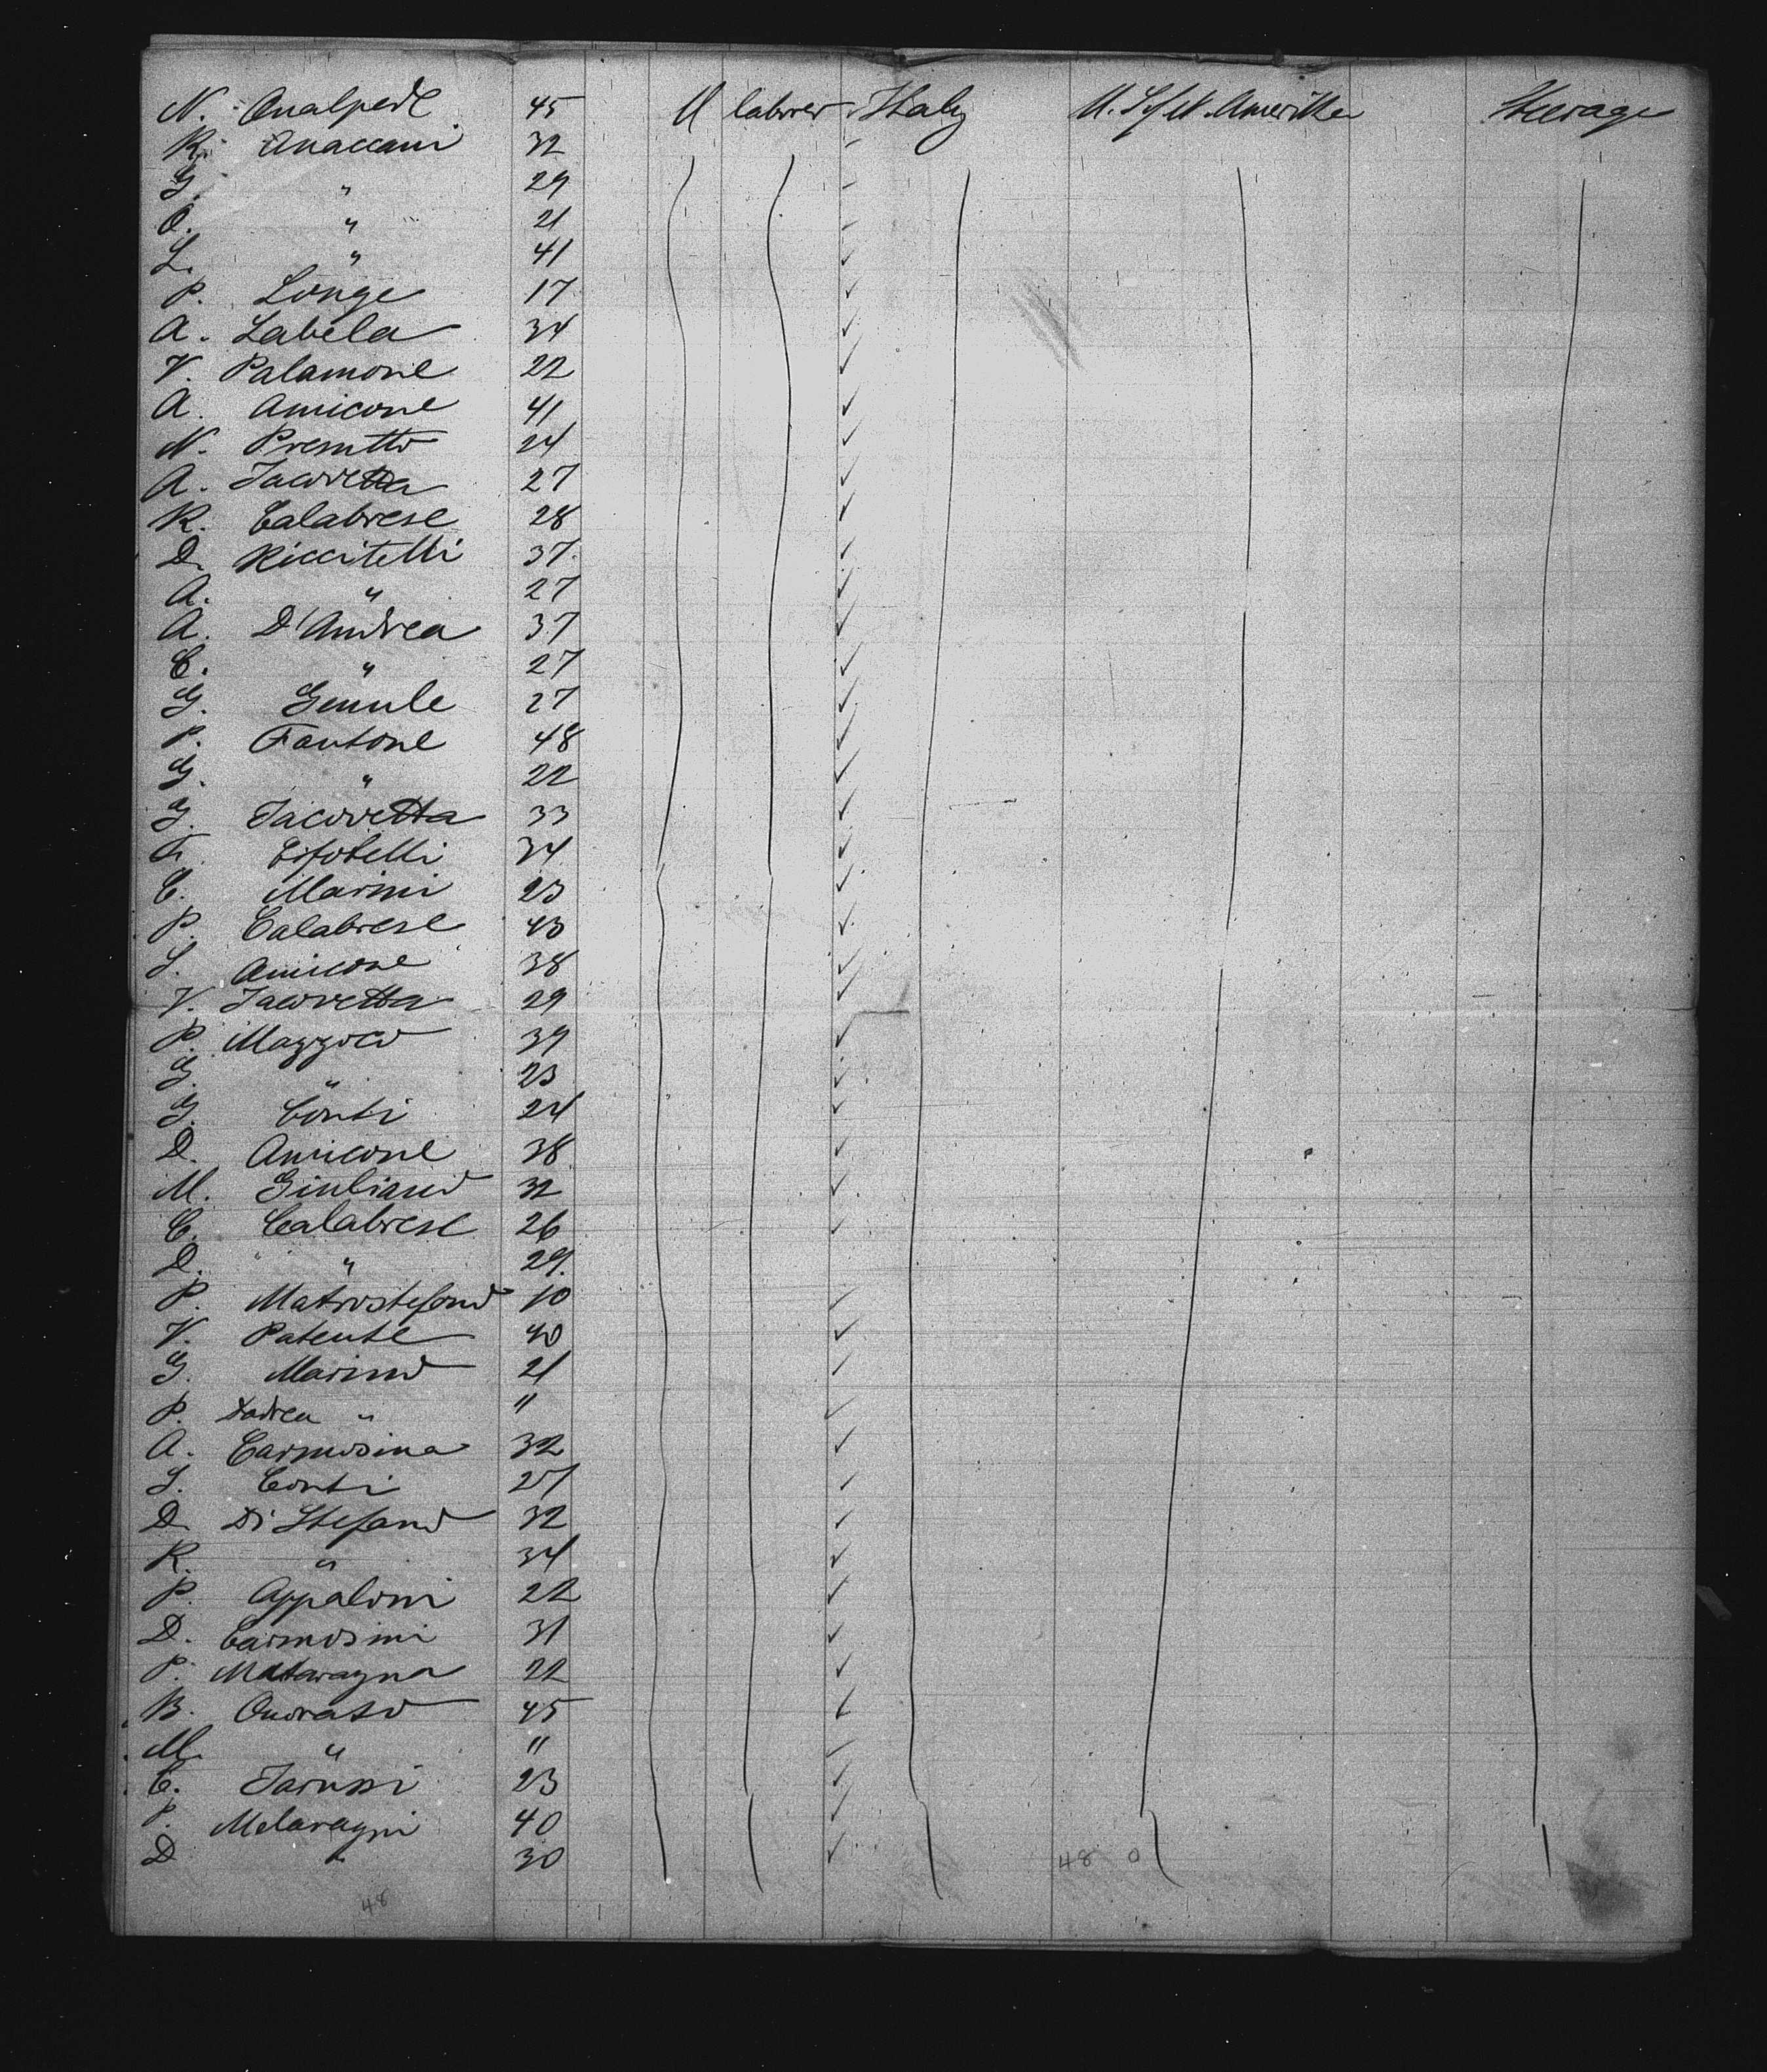 N. Onalpede 45 M laborer Italy U. S. of N. Amerika Steerage
R. Anaccani 32
G. " 29
O. " 21
L. " 41
P. Longe 17
A. Labela 34
V. Palamone 22
A. Amicone 41
N. Presutto 24
A. Iacovetta 27
R. Calabrese 28
D. Riccitelli 37
A. " 27
A. D'Andrea 37
C. " 27
G. 27
P. Fantone 48
G. " 22
G. Iacovetta 33
34
C. Marini 23
P. Calabrese 43
S. Amicone 38
V. Iacovetta 29
P. Mazzoco 39
G. " 23
G. Conti 24
D. Amicone 38
M. Giuliano 32
C. Calabrese 26
D. " 29
P. Matrostefano 10
V. Patente 40
G. Marino 21
P. Andrea " "
A. Carmosina 32
S. Conti 27
D. Di Stefano 32
R. " 34
P. Appaloni 22
D. Carmosini 31
P. Mataragna 22
B. Onorato 45
M. " "
C. Iarussi 23
P. Melaragni 40
D " 30
48 0
48